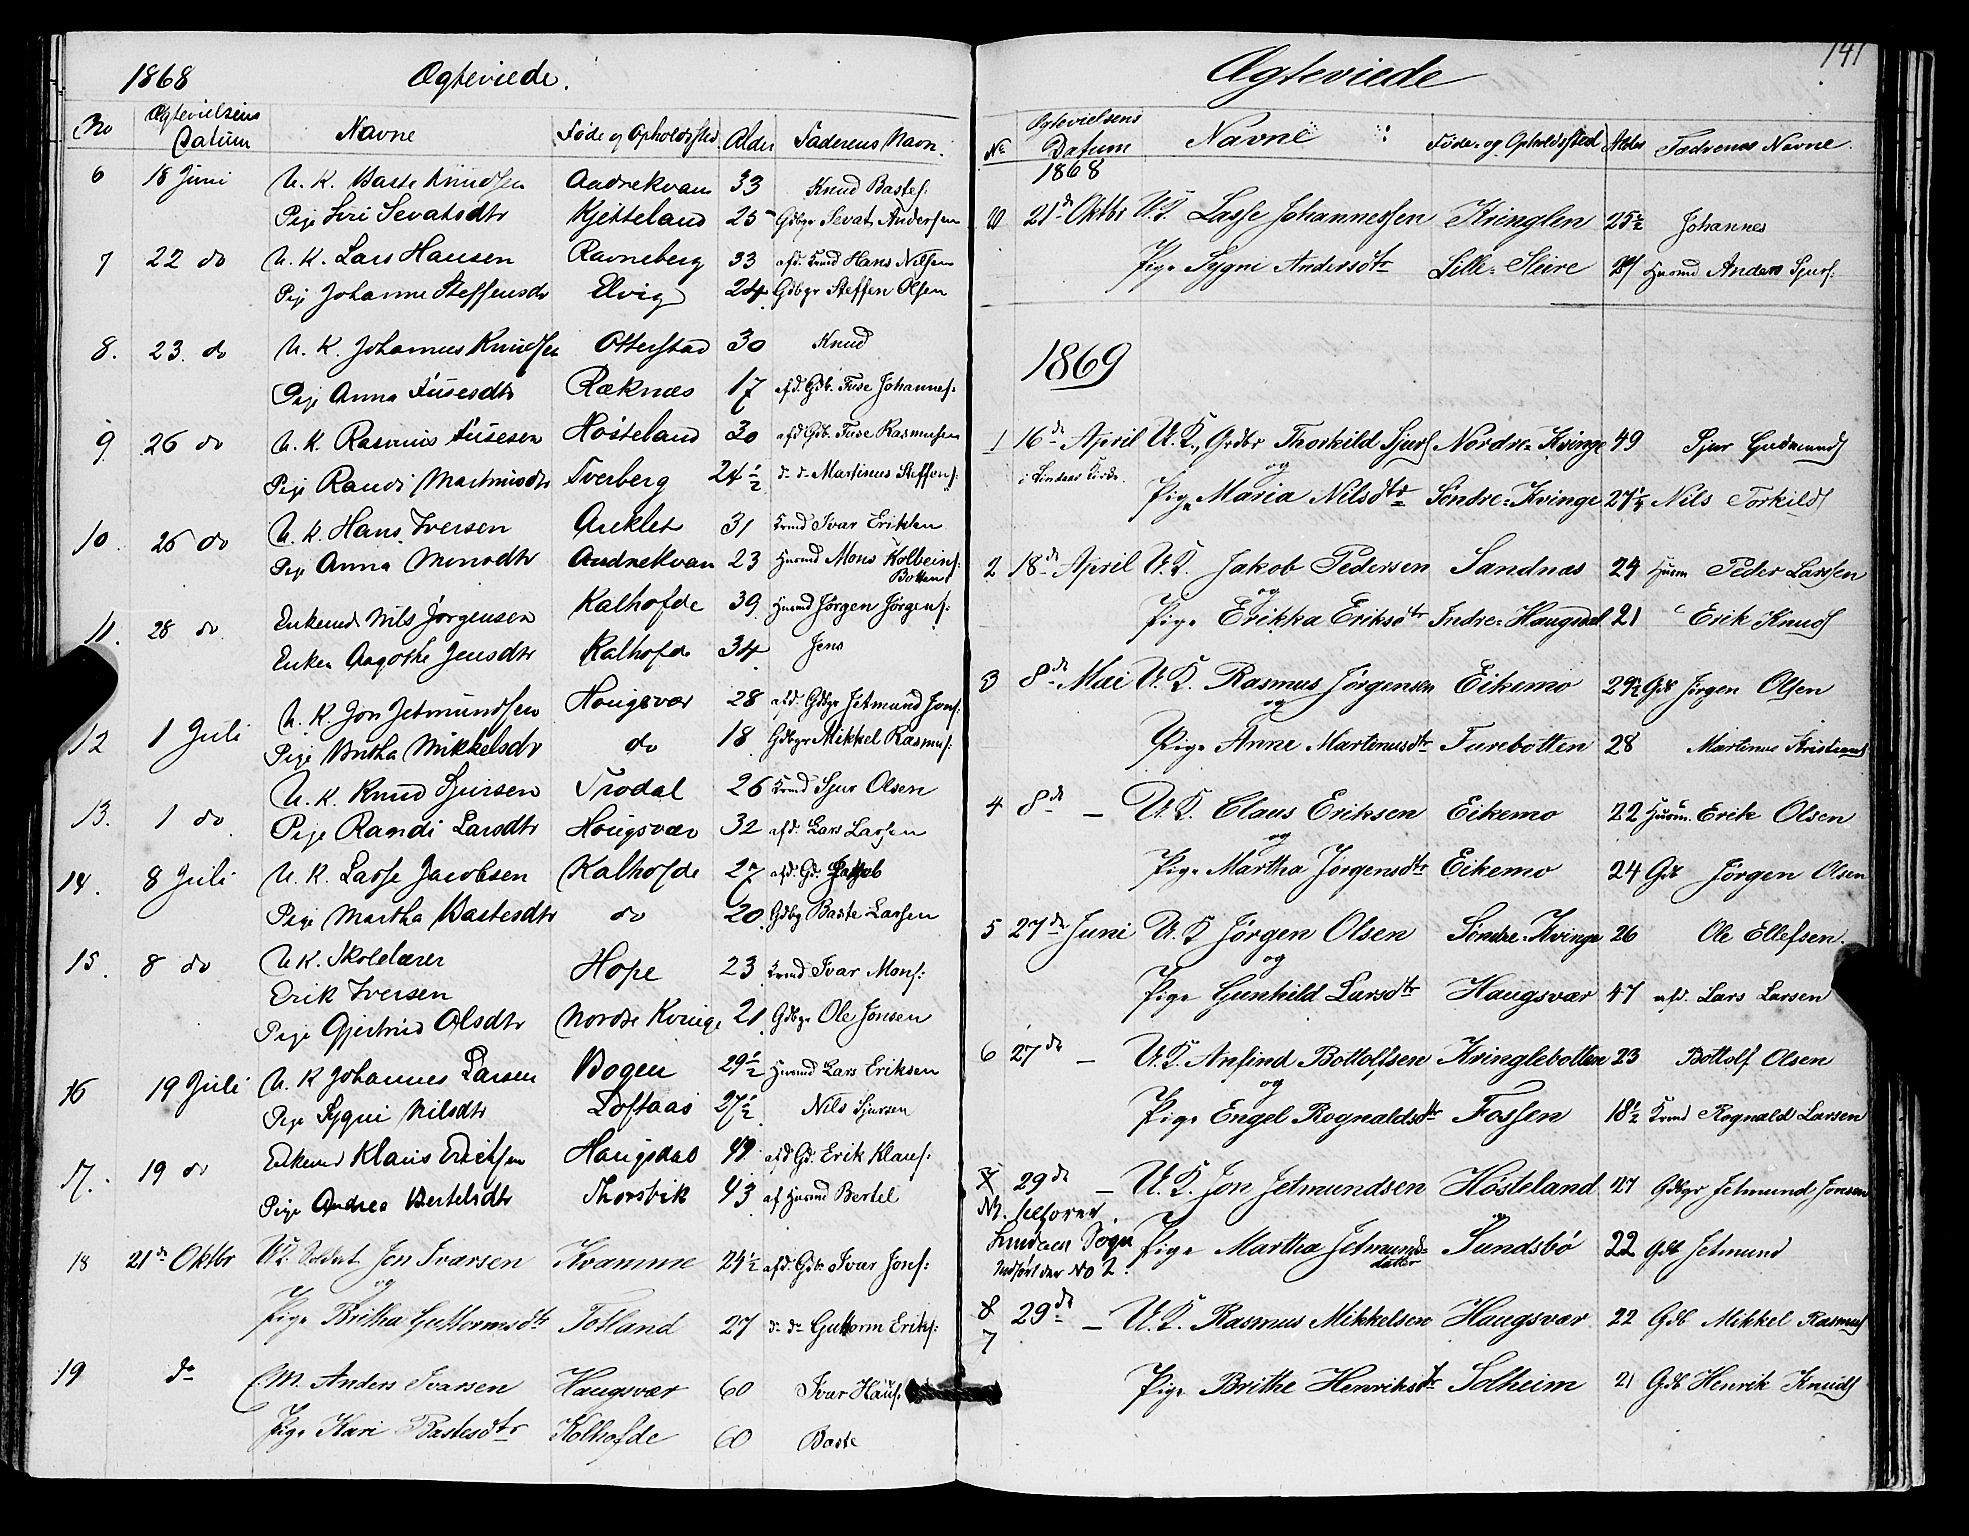 1868 Ægteviede.
No Ægtevielsens Datum Navne Føde og Opholdssted Alder Faderens Navn.
6 18 Juni U. K. Baste Knudsen Andrekvam 33 Knud Bastes:
Pige Siri Sevatsdtr Kjetteland 25 Gdbgr Sevat Andersen
7 22 do U. K. Lars Hansen Ravneberg 33 afd. Kmd Hans Nilsen
Pige Johanne Steffensdr Elvig 24. Gdbgr Steffen Olsen
8. 23. do U. K. Johannes Knudsen Otterstad 30 Knud
Pige Anna Fusesdtr Ræknæs 17 afd. Gdb. Fuse Johannes:
9 26 do U. K. Rasmus Fusesen Høsteland 30 afd Gdb. Fuse Rasmusen
Pige Randi Martinusdtr Tverberg 24 1/2 d. d. Martinus Steffens:
10. 26 do U. K. Hans Iversen Auklet 31 Kmd Ivar Eriksen
Pige Anna Monsdtr Andrekvam 23 Husmd Mons Kolbeins:
Botten
11. 28 do Enkemd Nils Jørgensen Kalhofde 39 Husmd Jørgen Jørgens:
Enken Aagothe Jensdtr Kalhofde 34. Jens
12 1 Juli U. K. Jon Jetmundsen Hougsvær 28 afd. Gdbgr Jetmund Jons:
Pige Britha Mikkelsdtr do 18 Gdbgr Mikkel Rasmus:
13. 1 do U. K. Knud Sjursen Trodal 26 Kmd Sjur Olsen
Pige Randi Larsdtr Hougsvær 32 afd. Lars Larsen
14. 8 Juli U. K. Lasse Jacobsen Kalhofde 27 afd. Gd. Jakob
Pige Martha Bastesdtr do 20. Gdbg Baste Larsen
15. 8 do U. K. Skolelærer
Erik Iversen Hope 23 Kmd Ivar Mons:
Pige Gjertrud Olsdtr Nordre Kvinge 21 Gdbgr Ole Jonsen
16 19 Juli U. K Johannes Larsen Bogen 29 1/2 Husmd Lars Eriksen
Pige Sygni Nilsdtr Loftaas 27 1/2 Nils Sjursen
17. 19 do Enkemd Klaus Eriksen Haugsdal 49 afd Gd. Erik Klaus:
Pige Andrea Bertelsdtr Thorsvik 43 af Husmd Bertel
18 21de Oktbr U. K. Soldat Jon Ivarsen Kvamme 24 1/2 afd. Gdb. Ivar Jons:
og
Pige Britha Guttormsdtr Totland 27 d. d. Guttorm Eriks:
19 do E. M. Anders Ivarsen Haugsvær 60 Ivar Hans
Pige Kari Bastesdtr Kolhofde 60 Baste
141
Ægteviede
No Ægtevielsens Datum Navne Føde- og Opholdssted Alder Fædrenes Navne.
1868
20 21de Oktbr U. K. Lasse Johannessen Kvinglen 25 1/2 Johannes
Pige Sygni Andersdtr Lille-Steire Husmd Anders Sjurs:
1869
1 16de April U. K., Grdbr Thorkild Sjurs Nordre-Kvinge 49 Sjur Gudmunds
og
i Lindaas Kirke. Pige Maria Nilsdtr Søndre-Kvinge 27 1/4 Nils Torkilds
2 18de April U. K. Jakob Pedersen Sandnæs 24 Husm Peder Larsen
og
Pige Erikka Eriksdtr Indre-Haugsd 21 Erik Knuds
3 8de Mai U. K. Rasmus Jørgensen Eikemo 29 1/2 Gdb Jørgen Olsen
og
Pige Anne Martinusdtr Furebotten 28 Martinus Kristians
4 8de — U. K. Claus Eriksen Eikemo 22 Husm. Erik Olsen
og
Pige Martha Jørgensdtr Eikemo 24 Gdb Jørgen Olsen
5 27de Juni U. K Jørgen Olsen Søndre-Kvinge 26 Ole Ellefsen.
og
Pige Gunhild Larsdtr Haugsvær 47 afd. Lars Larsen
6 27de — U. K. Anfind Bottolfsen Kvinglebotten 23 Bottolf Olsen
og
Pige Engel Rognaldsdtr Fossen 18 1/2 Kmd Rognald Larsen
7 29de — U. K. Jon Jetmundsen Høsteland 27 Gdbgr Jetmund Jonsen
Lindaas Sogn
Indført der No 2.
Pige Martha Jetmunds-
datter Sundsbø 22 Gdb Jetmund
8 29de — U. K. Rasmus Mikkelsen Haugsvær 22 Gdb Mikkel Rasmus
7
Pige Brithe Henriksdtr Solheim 21 Gdb Henrik Knuds